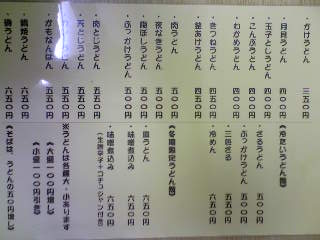 かけうどん 三五〇
月見うどん 四〇〇
玉子とじうどん 四五〇
こんぶうどん 四〇〇
わかめうどん 四〇〇
きつねうどん 四五〇
釜あげうどん 四〇〇
肉うどん 五〇〇
夜なきうどん 五〇〇
梅ぼしうどん 五〇〇
ぶっかけうどん 五〇〇
肉とじうどん 五五〇
天とじうどん 五五〇
うどん 五五〇
かもなんばん 五五〇
鍋焼うどん 六五〇
磯うどん 六五〇
《冷たいうどん類》
ざるうどん 五五〇
ぶっかけうどん 五〇〇
三色ざる 六五〇
冷めん 六五〇
《冬場限定うどん類》
うどん 六五〇
味噌煮込み 六五〇
味噌煮込み 六五〇
(生唐辛子+コチュジャン付き)
※うどんは各種大・小あります
《大盛一〇〇円増し》
《小盛一〇〇円引き》
《そばは、うどんの五〇円増し》